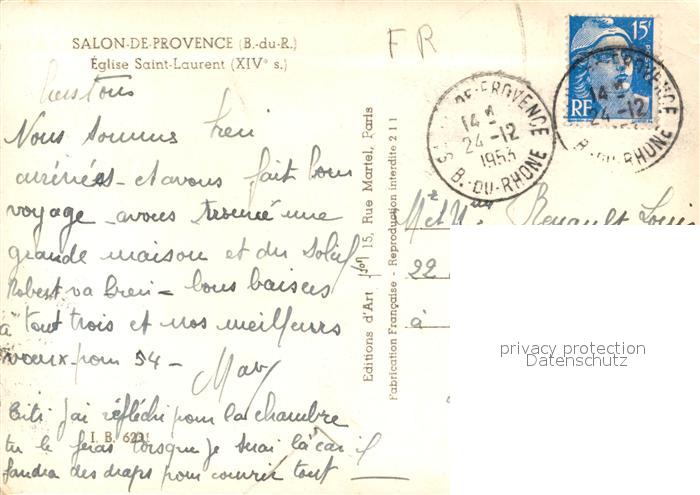 SALON-DE-PROVENCE (B.-du-R.)
Église Saint-Laurent (XIVe s.)
F R
15F
RF
DE-PROVENCE
14H
24-12
1953
B.-DU-RHONE
14H
24-12
B.-DU-RHONE
Nous sommes bien
arrivées et avons fait bon
voyage - avons trouvé une
grande maison et du Soleil
Robert va bien - bons baisers
à tout trois et nos meilleurs
voeux pour 54 -
Titi j'ai réfléchi pour la chambre
tu le feras lorsque je serai là car il
faudra des draps pour couvrir tout
I. B. 6231
Editions d'Art 15, Rue Martel, Paris
Fabrication Française - Reproduction interdite 211
Mr et Mme Renault Louis
22
à
privacy protection
Datenschutz